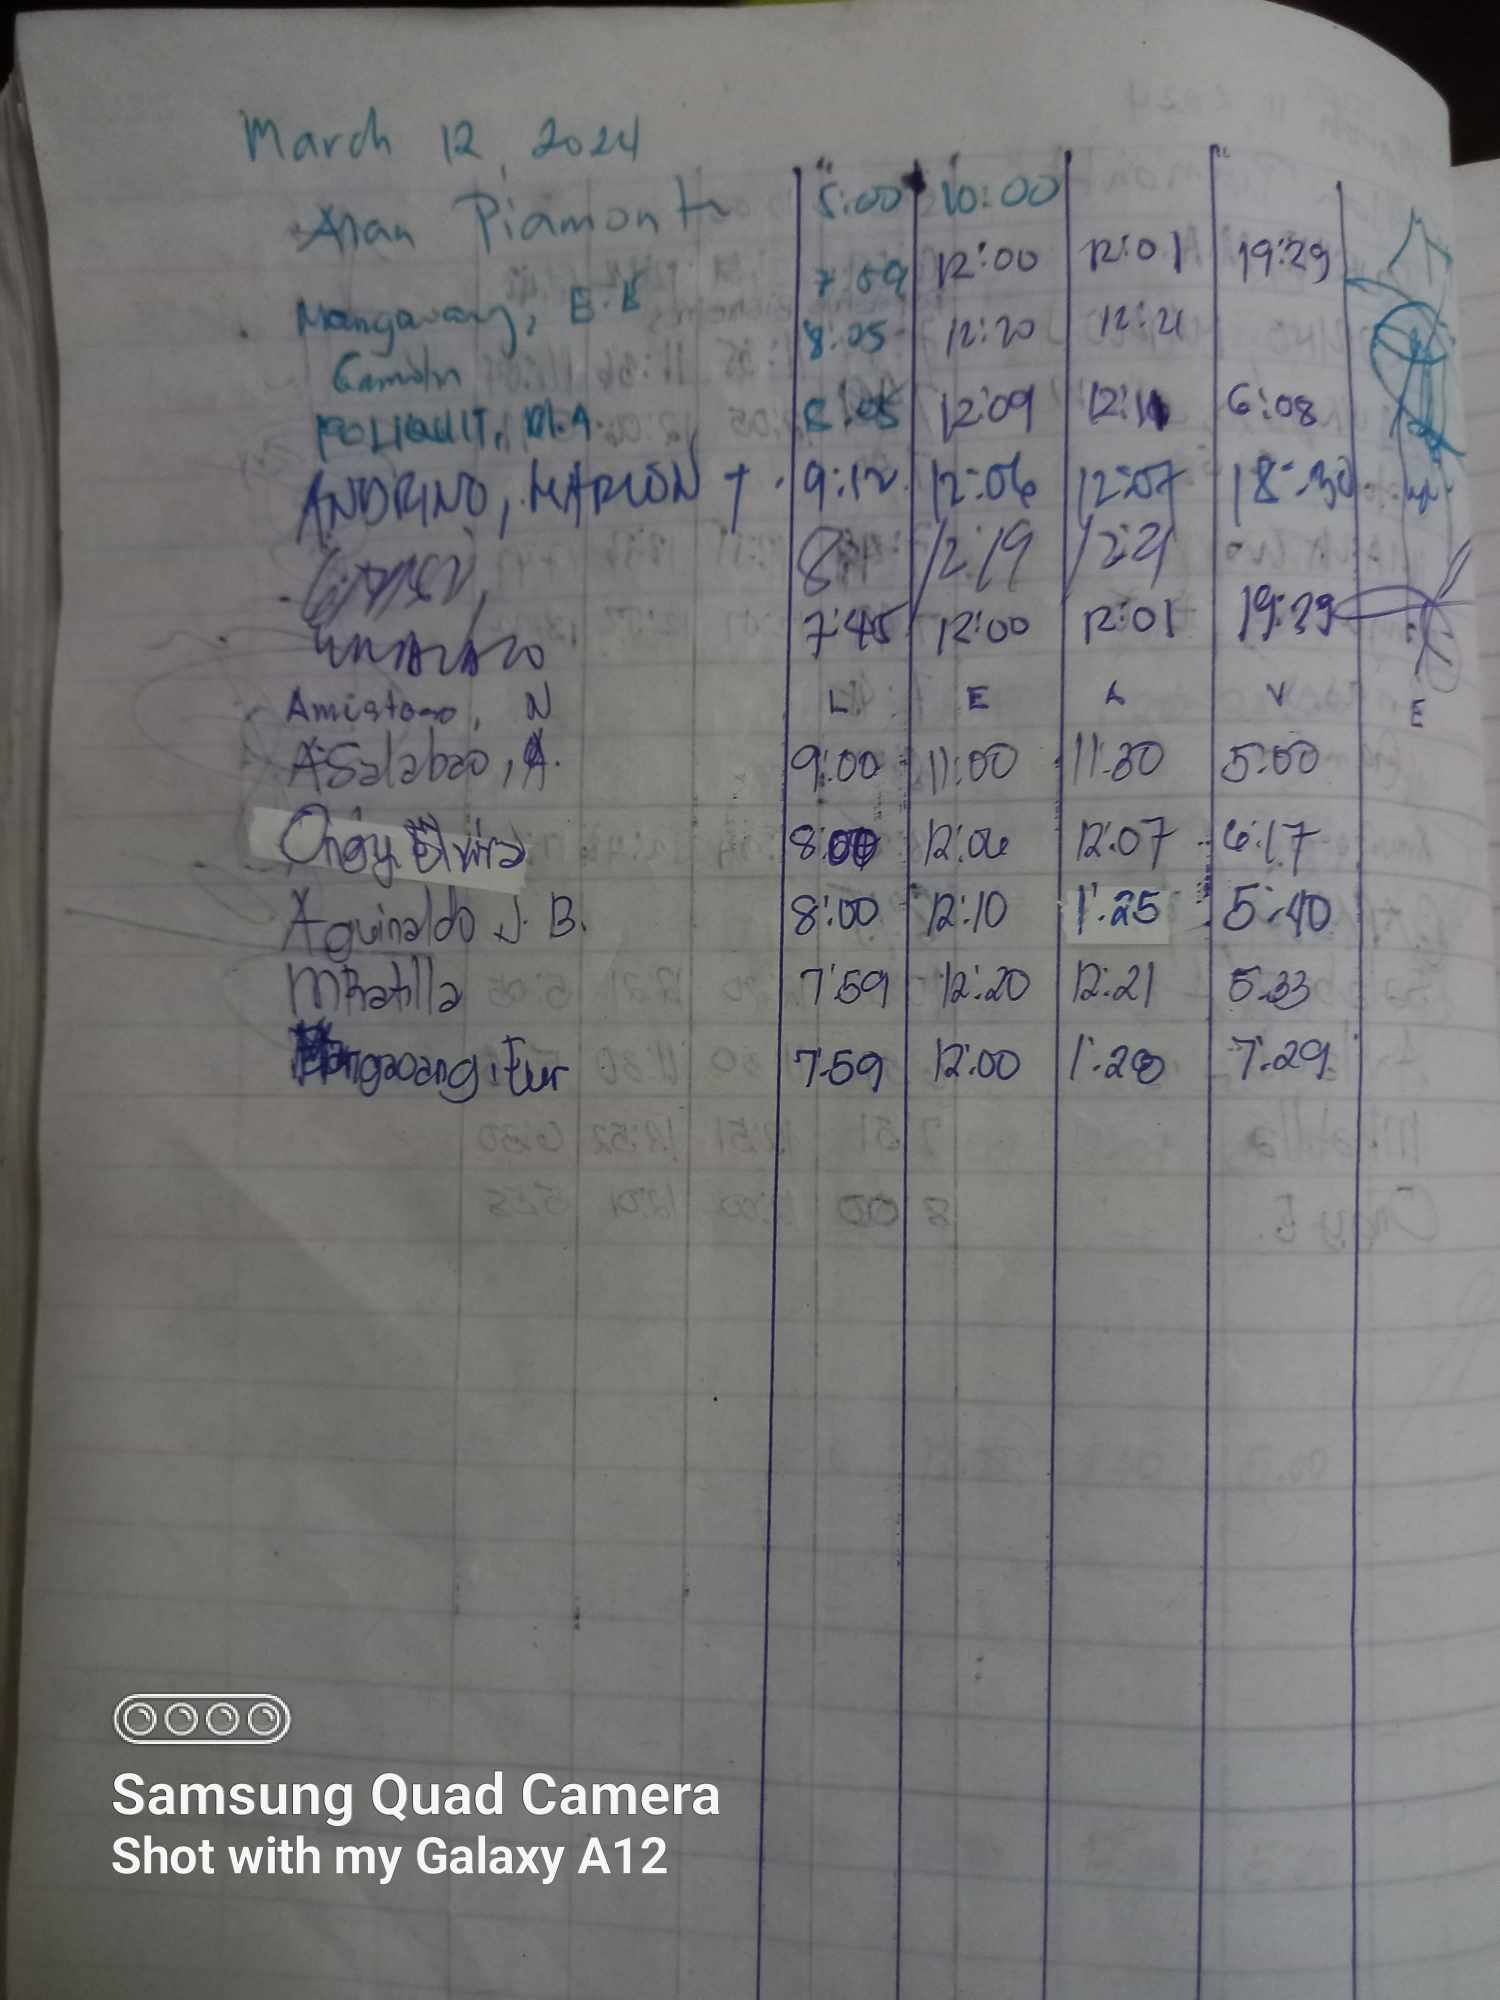 March 12, 2024
Alan Piamonte 5:00 10:00
Mangaoang, E.B 7:59 12:00 12:01 19:29
8:05 12:20 12:21
8:05 12:09 12:11 6:08
ANDRINO, MARLON T. 9:12 12:06 12:07 18:30
8: 12:19 12:21
7:45 12:00 12:01 19:29
Amistoso, N L E A V E
ASalabao, A. 9:00 11:00 11:30 5:00
Ongy. Elvira 8:00 12:06 12:07 6:17
Aguinaldo J. B. 8:00 12:10 1:25 5:40
MRatilla 7:59 12:20 12:21 5:33
Mangaoang, Eur 7:59 12:00 1:28 7:29
Samsung Quad Camera
Shot with my Galaxy A12